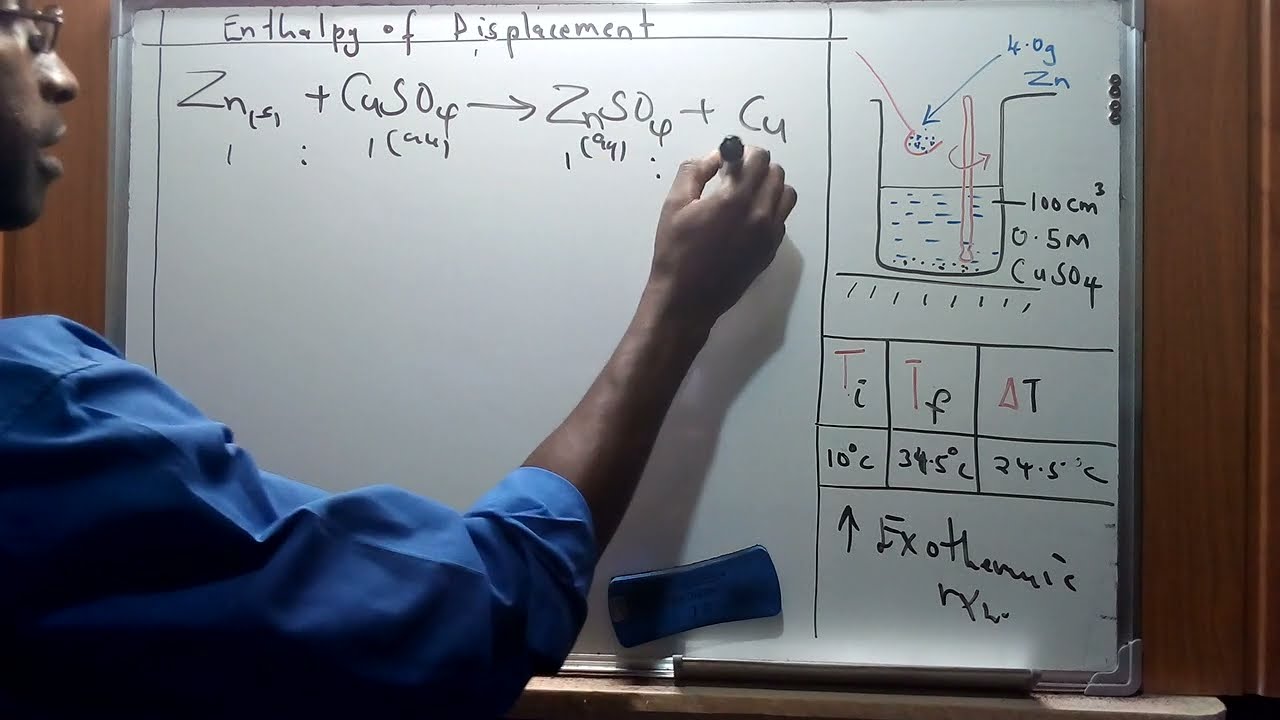 Enthalpy of Displacement
Zn(s) + CuSO4 → ZnSO4 + Cu
1 : 1 (aq) 1 (aq) :
4.0g
Zn
100cm³
0.5M
CuSO4
Ti Tf ΔT
10°C 34.5°C 24.5°C
↑ Exothermic
rxn.